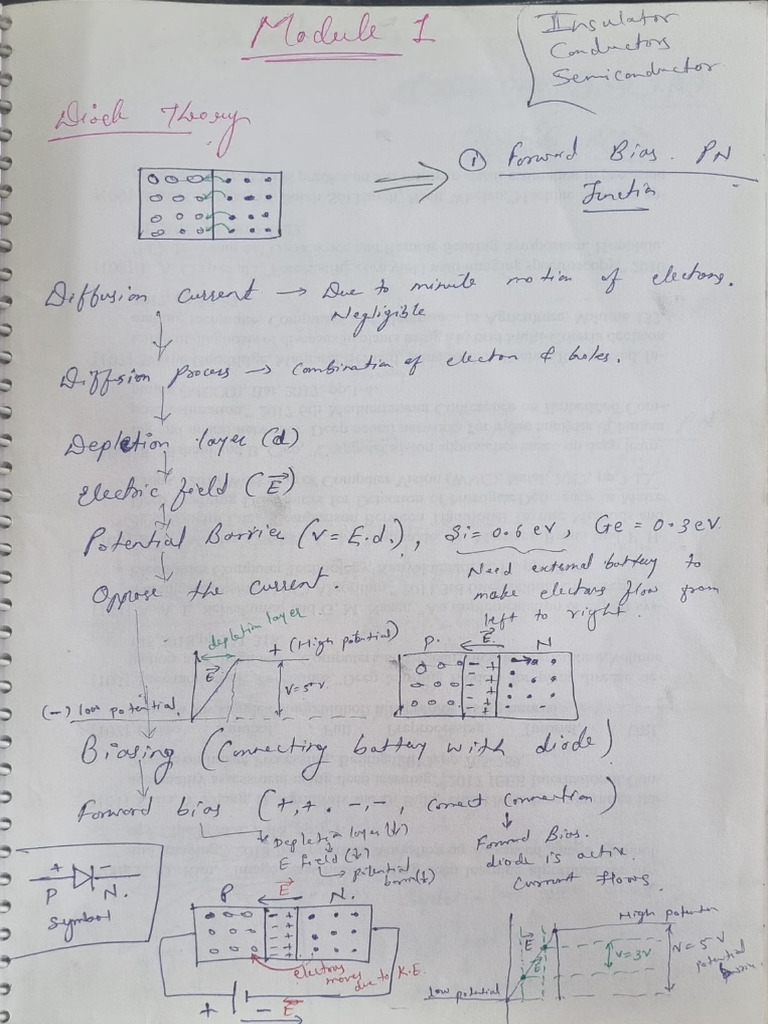 Module 1
Insulator
Conductors
Semiconductor
Diode Theory
① Forward Bias. PN
Junction
Diffusion current → Due to minute motion of electrons.
Negligible
Diffusion process → Combination of electron & holes.
Depletion layer (d)
Electric field (E)
Potential Barrier (V = E.d.), Si = 0.6 eV, Ge = 0.3 eV
Need external battery to
make electrons flow from
left to right.
Oppose the current.
depletion layer
+ (High potential)
E
V=5V
(-) low potential.
P. E N
Biasing (Connecting battery with diode)
Forward bias (+,+. -,-, correct connection)
Depletion layer (↓)
E field (↓)
→ potential
Forward Bias.
diode is active.
Current flows.
+ -
P N.
Symbol
P E N.
electrons
moves
due to K.E.
+ - E
High potential
E
E
V=3V
V=5V
potential
Low potential